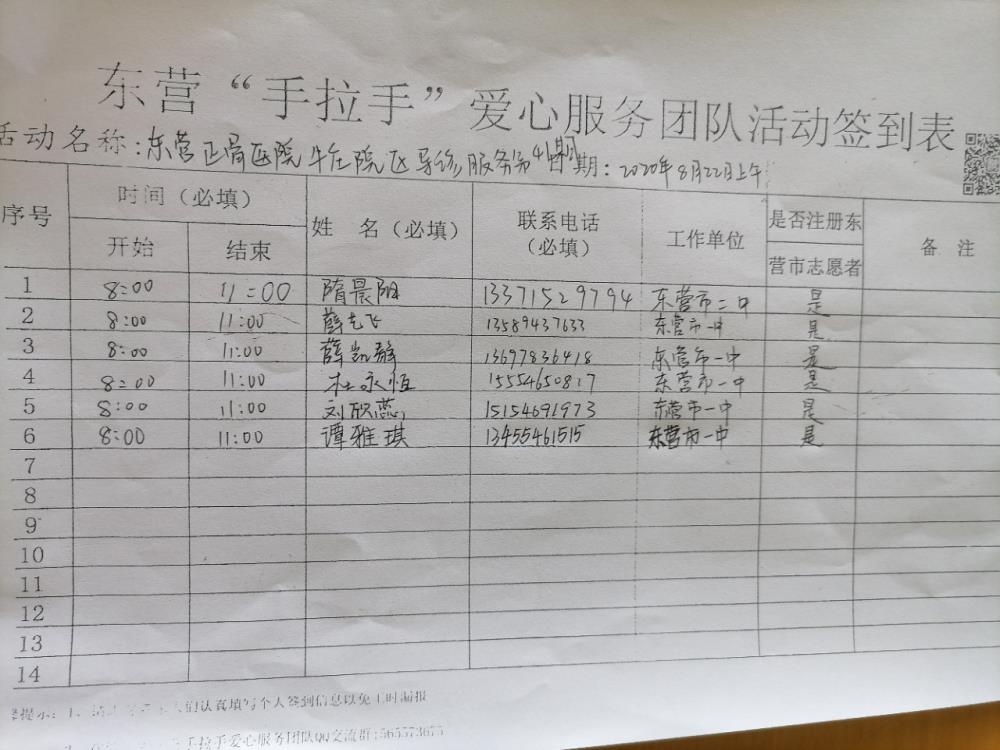 东营“手拉手”爱心服务团队活动签到表
活动名称：东营正骨医院牛庄院区导诊服务第4期 日期：2020年8月22日上午
序号 时间（必填） 姓 名（必填） 联系电话（必填） 工作单位 是否注册东营市志愿者 备 注
开始 结束
1 8:00 11:00 隋晨阳 13371529794 东营市二中 是
2 8:00 11:00 薛飞 13589437633 东营市一中 是
3 8:00 11:00 薛凯静 13697836418 东营市一中 是
4 8:00 11:00 杜永恒 15554650817 东营市一中 是
5 8:00 11:00 刘欣蕊 15154691973 东营市一中 是
6 8:00 11:00 谭雅琪 13455461515 东营市一中 是
7
8
9
10
11
12
13
14
提示：1、们认真填写个人签到信息以免工时漏报
手拉手爱心服务团队QQ交流群：565573675